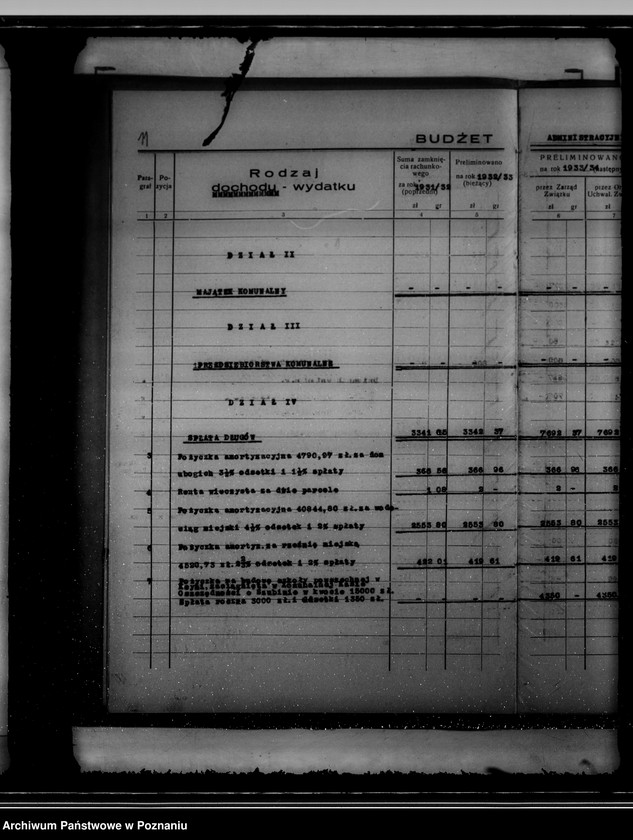 BUDŻET
ADMINISTRACYJN
Para- graf
Po- zycja
Rodzaj
dochodu - wydatku
Suma zamknię- cia rachunko- wego za rok 1931/32 (poprzedni)
Preliminowano na rok 1932/33 (bieżący)
PRELIMINOWANO
na rok 1933/34
przez Zarząd Związku
Uchwal. Zw
zł gr zł gr zł gr zł
1 2 3 4 5 6 7
DZIAŁ II
MAJĄTEK KOMUNALNY - - - - - - -
DZIAŁ III
PRZEDSIĘBIORSTWA KOMUNALNE
DZIAŁ IV
SPŁATA DŁUGÓW 3341 65 3342 37 7692 37 7692
3 Pożyczka amortyzacyjna 4790,97 zł.za dom
ubogich 3½% odsetki i 1½% spłaty 366 96 366 96 366
4 Renta wieczysta za dwie parcele 1 08 2 - 2 -
5 Pożyczka amortyzacyjna 40844,80 zł.za wodo-
ciąg miejski 4½% odsetek i 2% spłaty 2553 80 2553 80 2553 80 2553
6 Pożyczka amortyz.za rzeźnię miejską
4520,73 zł. odsetek i 2% spłaty 422 01 419 61 419 61 419
7 Pożyczka na budowę szkoły powszechnej w
Oszczędności o Szubinie w kwocie 15000 zł.
Spłata roczna 3000 zł.i odsetki 1350 zł. - - - - 4350 - 4350
Archiwum Państwowe w Poznaniu